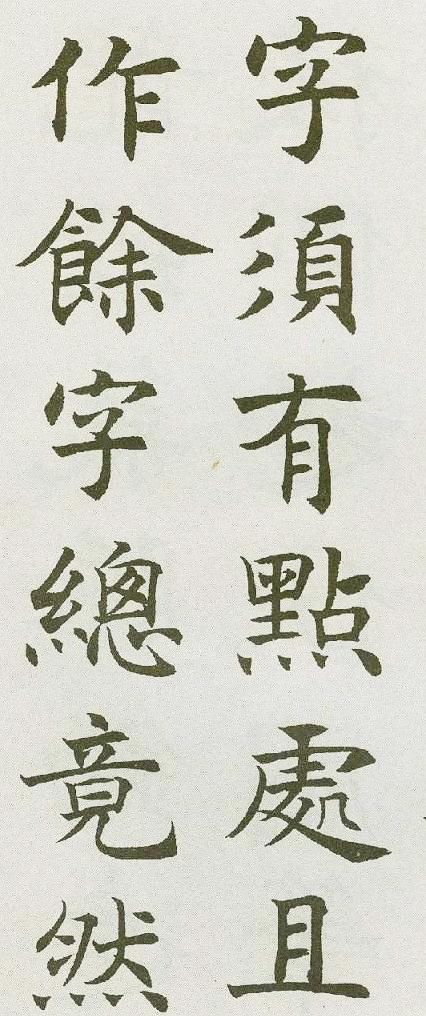 字須有點處且
作餘字總竟然